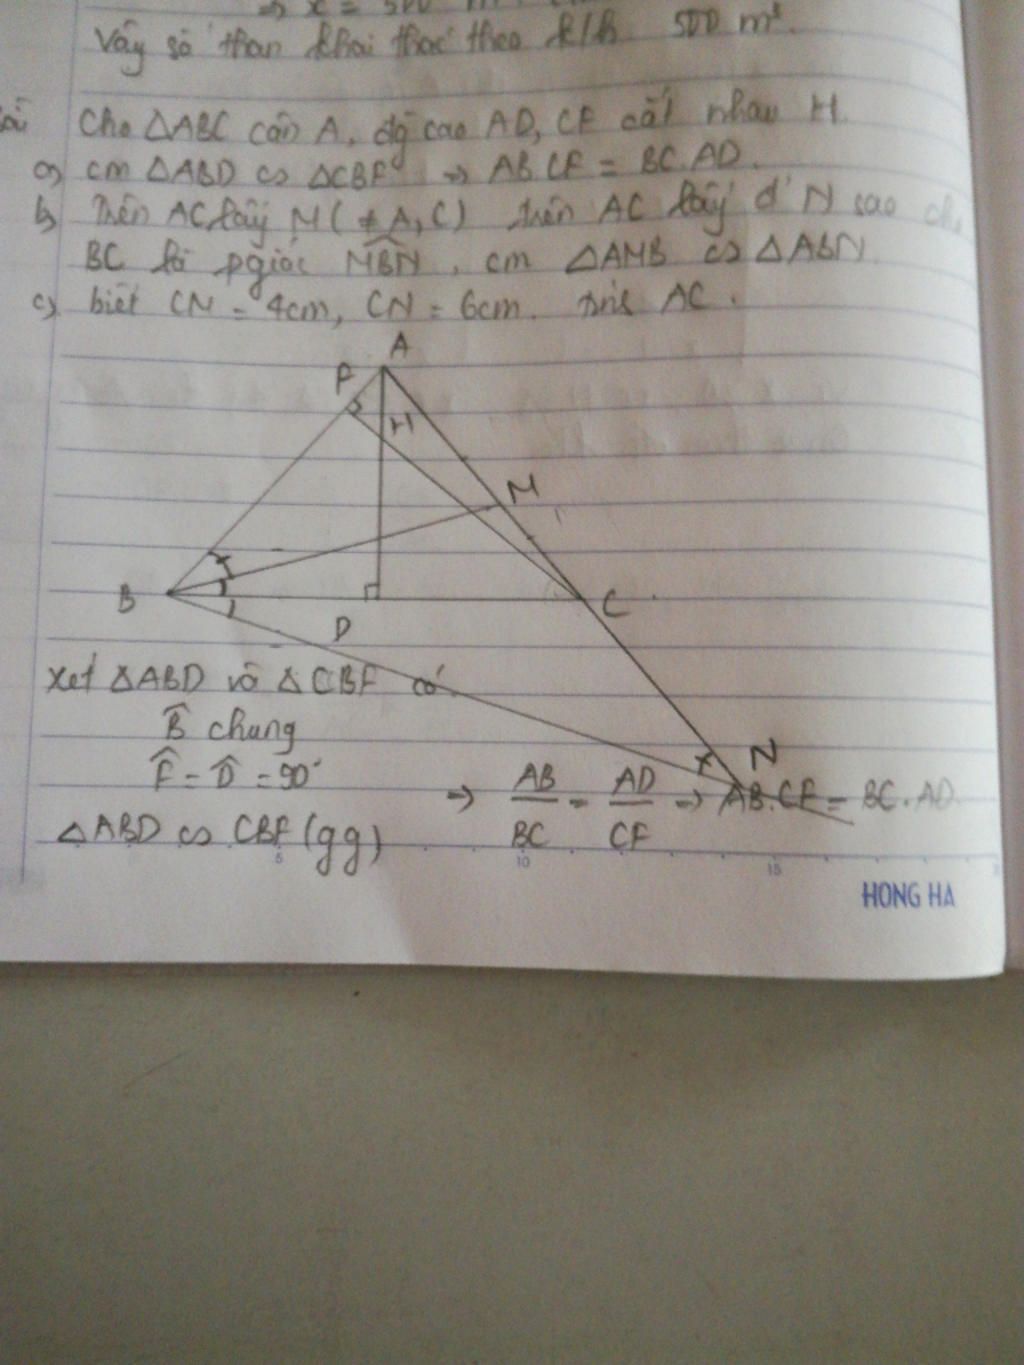 ⇒ x = 500 m
Vậy số than khai thác theo k/h 500 m³.
Bài Cho ΔABC cân A, đg cao AD, CF cắt nhau H.
a) cm ΔABD ∽ ΔCBF ⇒ AB.CF = BC.AD.
b) Trên AC lấy M (≠ A, C) trên AC lấy đ' N sao ch
BC là pgiác MBN, cm ΔAMB ∽ ΔABN
c) biết CN = 4cm, CN = 6cm. Tính AC.
A
F
H
M
B
C
D
Xét ΔABD và ΔCBF có
B̂ chung
N
F̂ = D̂ = 90°
⇒ AB/BC = AD/CF ⇒ AB.CF = BC.AD
ΔABD ∽ CBF (gg)
5 10 15
HONG HA